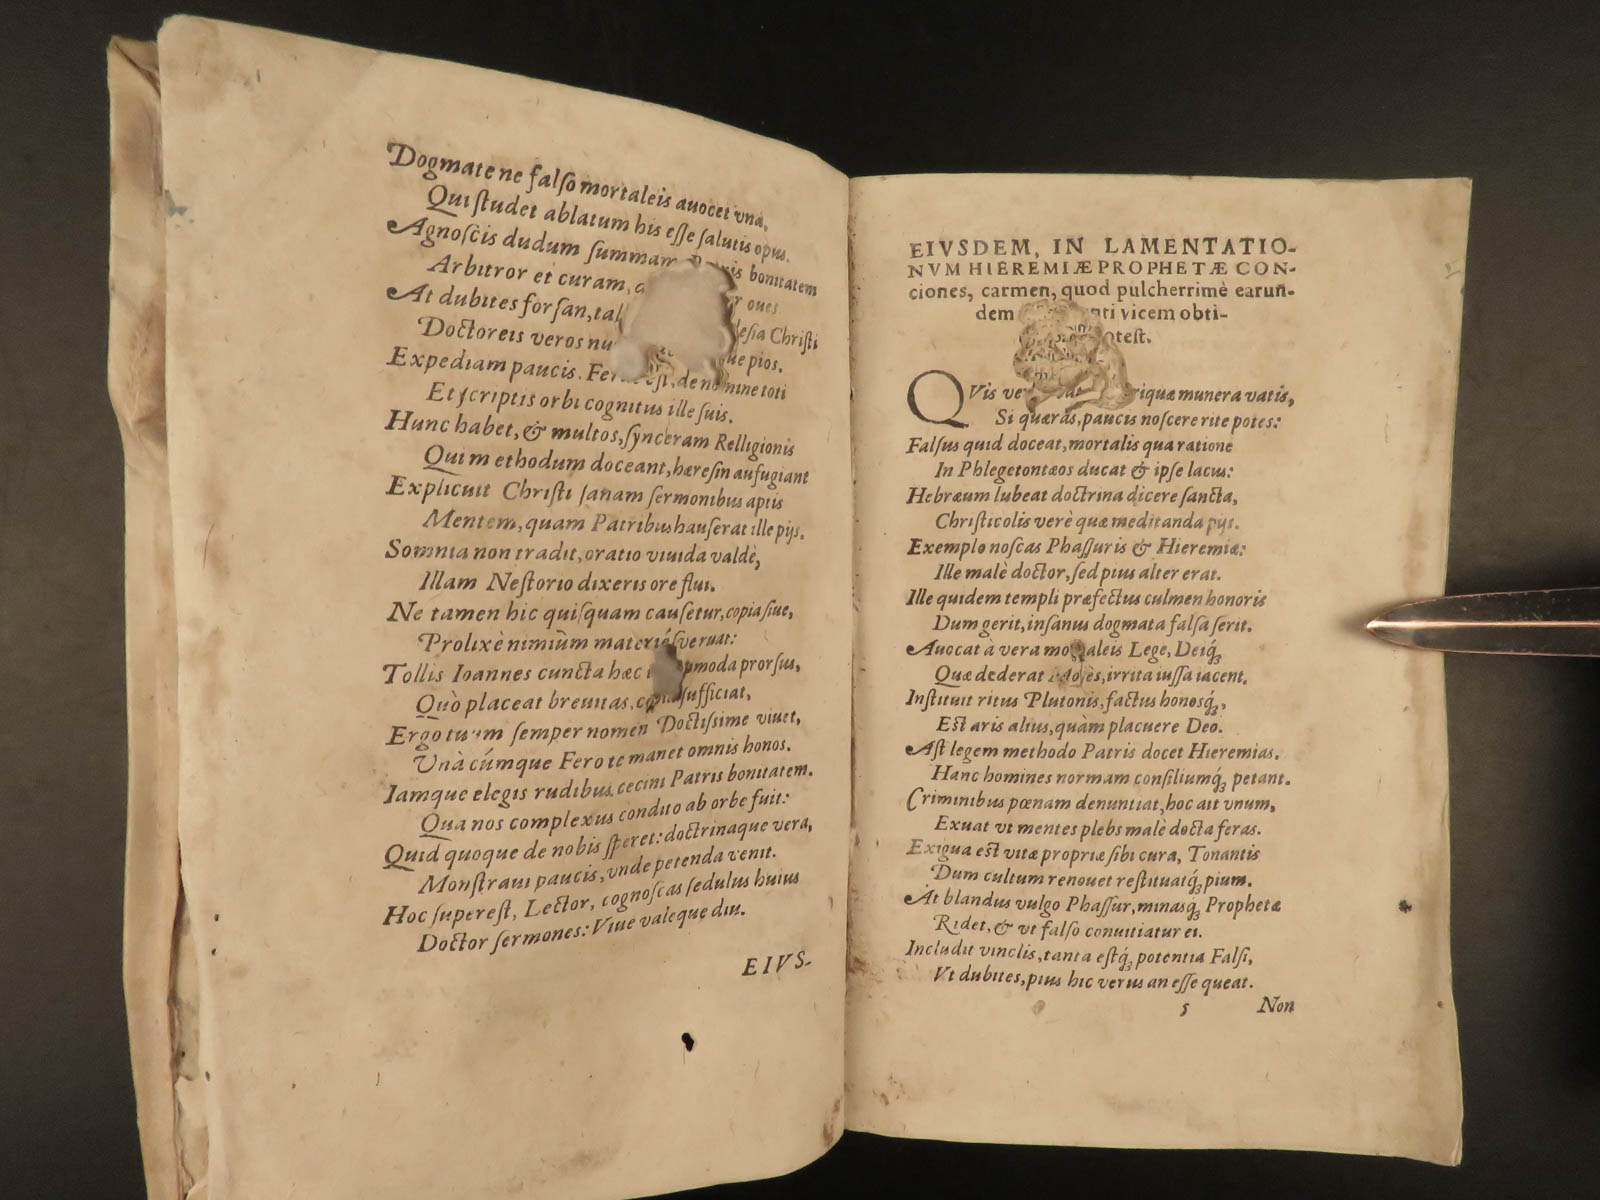 Dogmate ne falſo mortaleis auocet vna,
Qui ſtudet ablatum his eſſe ſalutis opus.
Agnoſcis dudum ſummam Patris bonitatem
Arbitror et curam, oues
At dubites forſan, Chriſti
Doctoreis veros pios.
Expediam paucis. eſt, de nomine toti
Et ſcriptis orbi cognitus ille ſuis.
Hunc habet, & multos, ſynceram Relligionis
Qui methodum doceant, hæreſin aufugiant
Explicuit Chriſti ſanam ſermonibus aptis
Mentem, quam Patribus hauſerat ille pijs.
Somnia non tradit, oratio viuida valdè,
Illam Neſtorio dixeris ore flui.
Ne tamen hic quiſquam cauſetur, copia ſiue,
Prolixè nimiùm
Tollis Ioannes cuncta hæc prorſus,
Quò placeat breuitas, ſufficiat,
Ergo tuum ſemper nomen Doctiſsime viuet,
Vnà cúmque Fero te manet omnis honos.
Iamque elegis rudibus cecini Patris bonitatem.
Qua nos complexus condito ab orbe fuit:
Quid quoque de nobis ſperet: doctrinaque vera,
Monſtraui paucis, vnde petenda venit.
Hoc ſupereſt, Lector, cognoſcas ſedulus huius
Doctor ſermones: Viue valeque diu.
EIVS-
EIVSDEM, IN LAMENTATIO-
NVM HIEREMIÆ PROPHETÆ CON-
ciones, carmen, quod pulcherrimè earun-
dem vicem obti-
poteſt.
QVis munera vatis,
Si quæras, paucis noſcere rite potes:
Falſus quid doceat, mortalis qua ratione
In Phlegetontæos ducat & ipſe lacus:
Hebræum lubeat doctrina dicere ſancta,
Chriſticolis verè quæ meditanda pijs.
Exemplo noſcas Phaſſuris & Hieremiæ:
Ille malè doctor, ſed pius alter erat.
Ille quidem templi præfectus culmen honoris
Dum gerit, inſanus dogmata falſa ſerit.
Auocat à vera mortaleis Lege, Deiq́;
Quæ dederat Moſes, irrita iuſſa iacent.
Inſtituit ritus Plutonis, factus honosq́;,
Eſt aris alius, quàm placuere Deo.
Aſt legem methodo Patris docet Hieremias.
Hanc homines normam conſiliumq́; petant.
Criminibus pœnam denuntiat, hoc ait vnum,
Exuat vt mentes plebs malè docta feras.
Exigua eſt vitæ propriæ ſibi cura, Tonantis
Dum cultum renouet reſtituatq́; pium.
At blandus vulgo Phaſſur, minasq́; Prophetæ
Ridet, & vt falſo conuitiatur ei.
Includit vinclis, tanta eſtq́; potentia Falſi,
Vt dubites, pius hic verus an eſſe queat.
5 Non